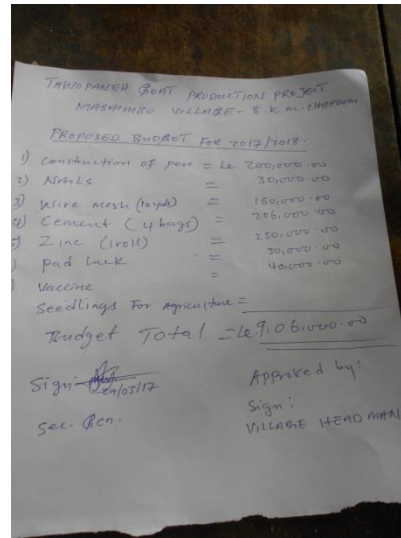 TAWOPANEH GOAT PRODUCTION PROJECT
MASAIMBO VILLAGE - B K M CHIEFDOM
PROPOSED BUDGET FOR 2017/2018.
1) Construction of pen = Le 200,000.00
2) NAILS = 30,000.00
3) Wire mesh = 150,000.00
4) Cement (4 bags) = 206,000.00
5) Zinc (1 roll) = 250,000.00
) pad luck = 30,000.00
) Vaccine = 40,000.00
Seedlings For Agriculture =
Budget Total = Le 9,06,000.00
Sign: 29/03/17
Sec. Gen.
Approved by:
Sign:
VILLAGE HEAD MAN